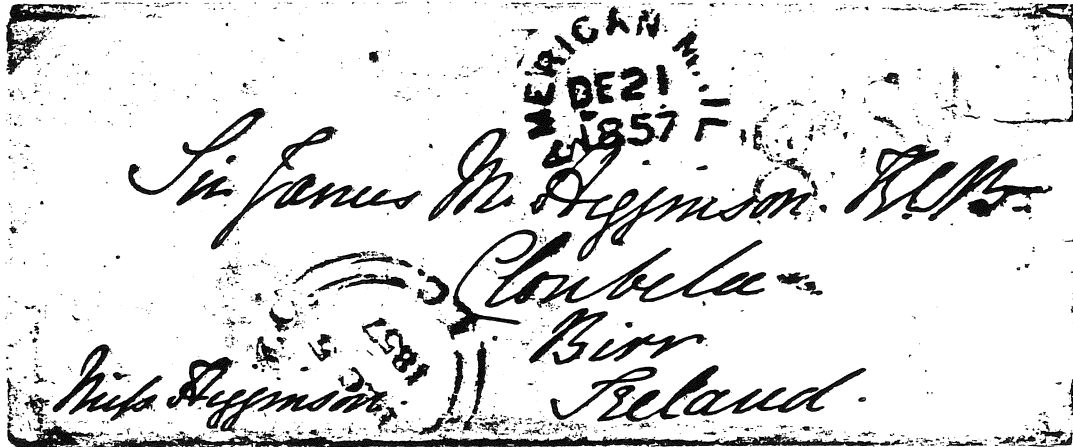 AMERICAN
DE21
1857
Sir James M. Higginson. K.C.B.
Clonbela
Birr
Ireland.
Miss Higginson.
1857